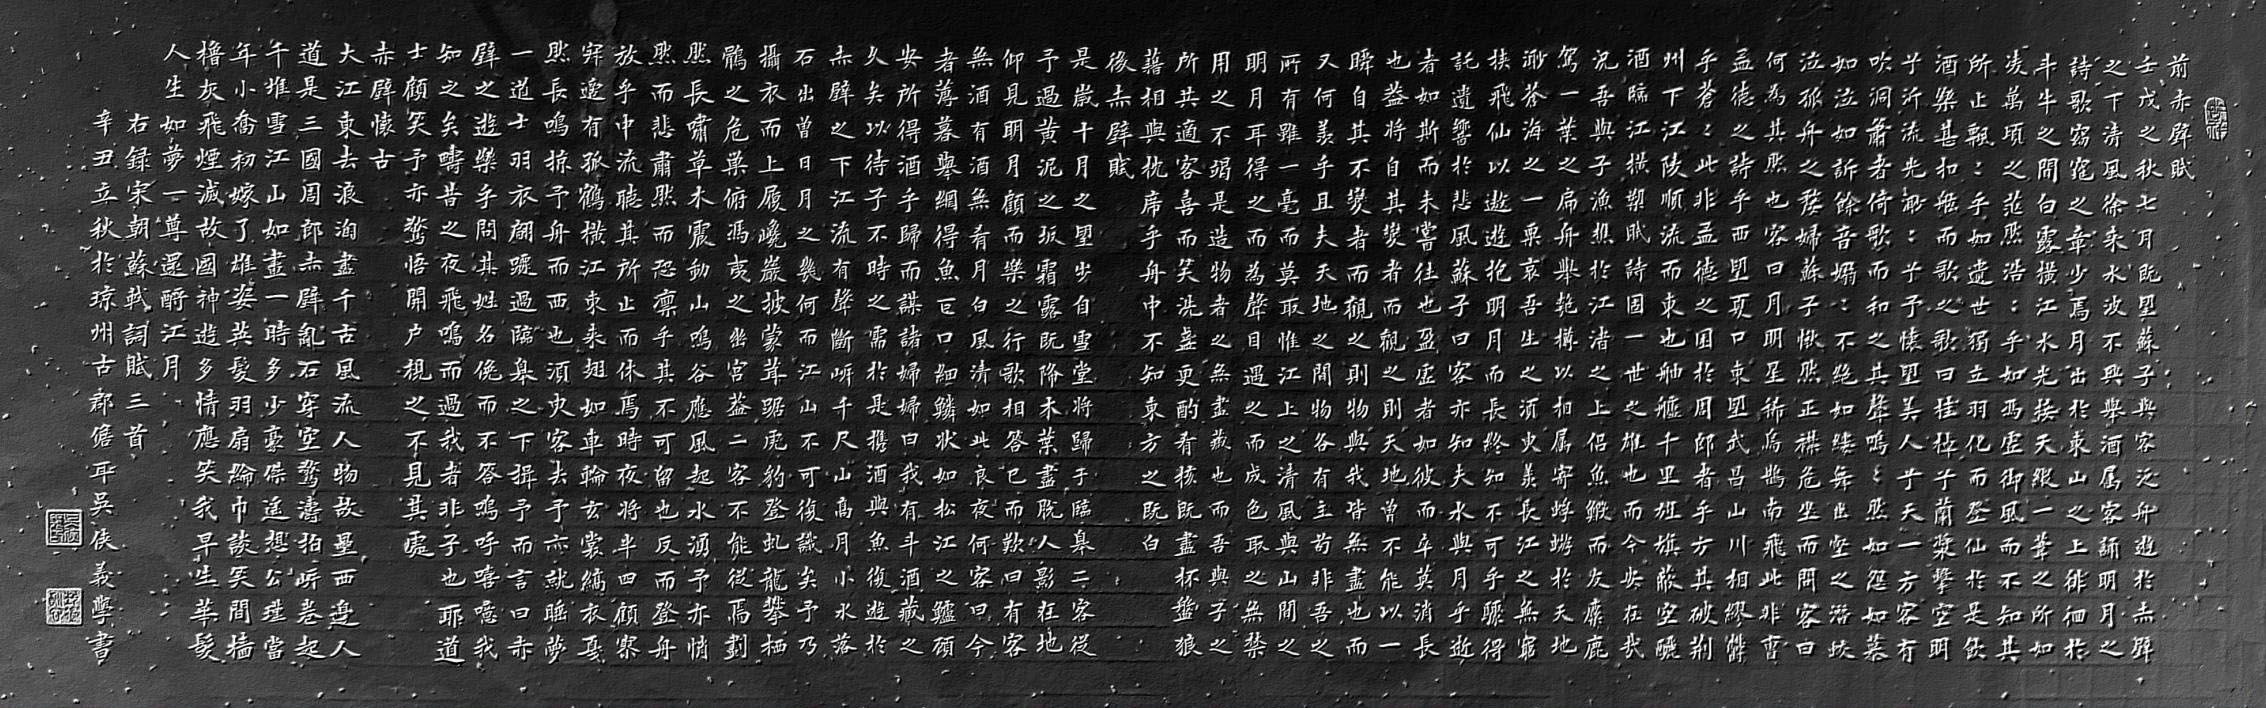 前赤壁賦
壬戌之秋七月既望蘇子與客泛舟遊於赤壁
之下清風徐来水波不興舉酒属客誦明月之
詩歌窈窕之章少焉月出於東山之上徘徊於
斗牛之間白露橫江水光接天縱一葦之所如
凌萬頃之茫然浩〻乎如馮虛御風而不知其
所止飄〻乎如遺世獨立羽化而登仙於是飲
酒樂甚扣舷而歌之歌曰桂棹兮蘭槳擊空明
兮泝流光渺〻兮予懷望美人兮天一方客有
吹洞簫者倚歌而和之其聲嗚〻然如怨如慕
如泣如訴餘音嫋〻不絕如縷舞幽壑之潛蛟
泣孤舟之嫠婦蘇子愀然正襟危坐而問客曰
何為其然也客曰月明星稀烏鵲南飛此非曹
孟德之詩乎西望夏口東望武昌山川相繆鬱
乎蒼〻此非孟德之困於周郎者乎方其破荆
州下江陵順流而東也舳艫千里旌旗蔽空釃
酒臨江橫槊賦詩固一世之雄也而今安在哉
況吾與子漁樵於江渚之上侶魚鰕而友麋鹿
駕一葉之扁舟舉匏樽以相属寄蜉蝣於天地
渺蒼海之一粟哀吾生之須臾羨長江之無窮
挾飛仙以遨遊抱明月而長終知不可乎驟得
託遺響於悲風蘇子曰客亦知夫水與月乎逝
者如斯而未嘗往也盈虛者如彼而卒莫消長
也蓋將自其變者而觀之則天地曾不能以一
瞬自其不變者而觀之則物與我皆無盡也而
又何羨乎且夫天地之間物各有主苟非吾之
所有雖一毫而莫取惟江上之清風與山間之
明月耳得之而為聲目遇之而成色取之無禁
用之不竭是造物者之無盡藏也而吾與子之
所共適客喜而笑洗盞更酌肴核既盡杯盤狼
藉相與枕席乎舟中不知東方之既白
後赤壁賦
是歲十月之望步自雪堂將歸于臨皋二客從
予過黄泥之坂霜露既降木葉盡脫人影在地
仰見明月顧而樂之行歌相答已而歎曰有客
無酒有酒無肴月白風清如此良夜何客曰今
者薄暮舉網得魚巨口細鱗狀如松江之鱸顧
安所得酒乎歸而謀諸婦婦曰我有斗酒藏之
久矣以待子不時之需於是攜酒與魚復遊於
赤壁之下江流有聲斷岸千尺山高月小水落
石出曾日月之幾何而江山不可復識矣予乃
攝衣而上履巉巖披蒙茸踞虎豹登虬龍攀栖
鶻之危巢俯馮夷之幽宮蓋二客不能從焉劃
然長嘯草木震動山鳴谷應風起水湧予亦悄
然而悲肅然而恐凛乎其不可留也反而登舟
放乎中流聽其所止而休焉時夜將半四顧寂
寥適有孤鶴橫江東来翅如車輪玄裳縞衣戛
然長鳴掠予舟而西也須臾客去予亦就睡夢
一道士羽衣翩躚過臨皋之下揖予而言曰赤
壁之遊樂乎問其姓名俛而不答嗚呼噫嘻我
知之矣疇昔之夜飛鳴而過我者非子也耶道
士顧笑予亦驚悟開户視之不見其處
赤壁懷古
大江東去浪淘盡千古風流人物故壘西邊人
道是三國周郎赤壁亂石穿空驚濤拍岸卷起
千堆雪江山如畫一時多少豪傑遙想公瑾當
年小喬初嫁了雄姿英發羽扇綸巾談笑間檣
櫓灰飛煙滅故國神遊多情應笑我早生華髮
人生如夢一尊還酹江月
右録宋朝蘇軾詞賦三首
辛丑立秋於琼州古郡儋耳吳俠義學書